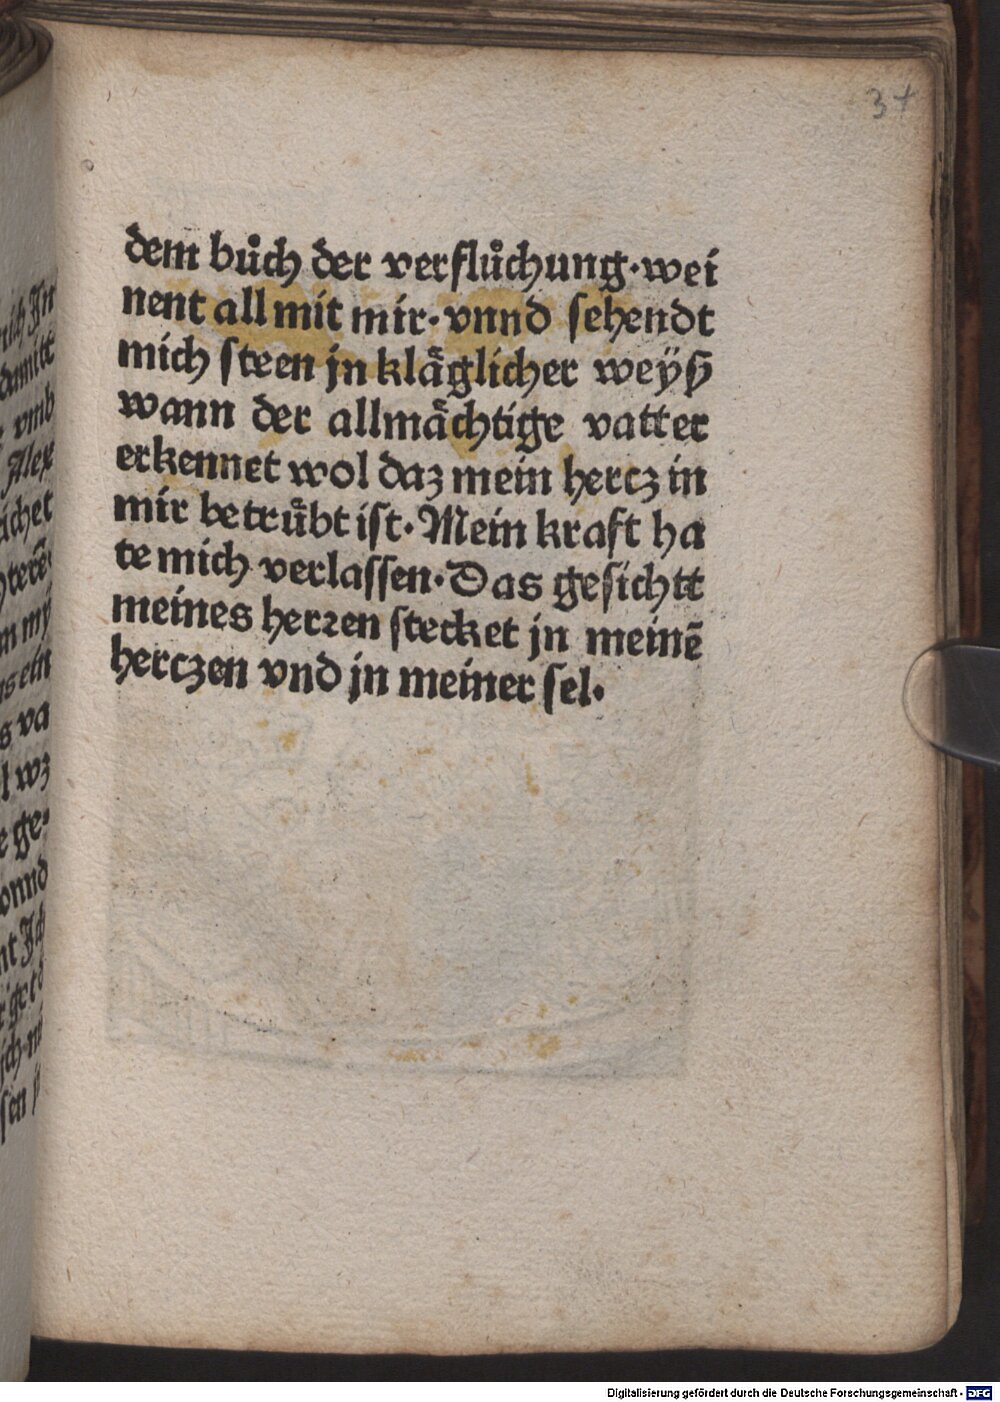 37
dem bůch der verflůchung·wei
nent all mit mir·vnnd sehendt
mich steen jn klaͤglicher weyß
wann der allmaͤchtige vatter
erkennet wol daz mein hercz in
mir betruͤbt ist·Mein kraft ha
te mich verlassen·Das gesichtt
meines herꝛen stecket jn meinē
herczen vnd jn meiner sel·
Digitalisierung gefördert durch die Deutsche Forschungsgemeinschaft · DFG